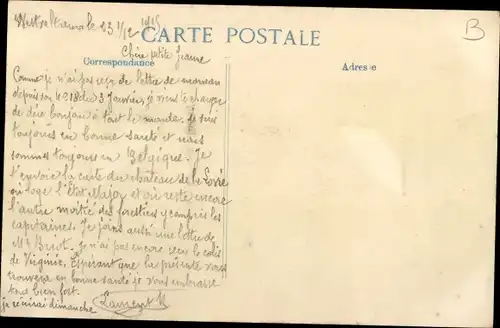 le 23 1/12 1915
CARTE POSTALE
B
Chère petite Jeanne
Correspondance
Adresse
Comme je n'ai pas reçu de lettre de
depuis son du 3 Janvier, je viens te
de dire bonjour à tout le monde. je suis
toujours en bonne santé et nous
sommes toujours en Belgique. Je
t'envoie la carte du chateau de la Lovie
où loge l'État Major et où reste encore
l'autre moitié des forestiers y compris les
capitaines. Je joins aussi une lettre de
Mr je n'ai pas encore reçu le colis
de Virginie. Espérant que la présente vous
trouvera en bonne santé je vous embrasse
tous bien fort.
je récrirai dimanche Laurent